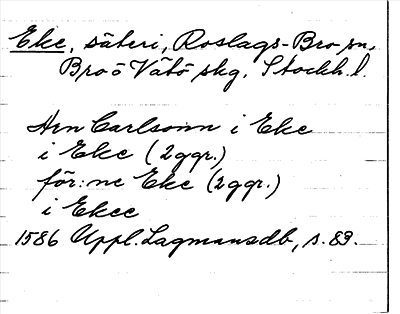 Eke, säteri, Roslags-Bro sn,
Bro o Vätö skg, Stockh. l.
Hrn Carlsonn i Eke
i Eke (2ggr.)
för:ne Eke (2ggr.)
i Ekee
1586 Uppl. Lagmansdb, s. 83.